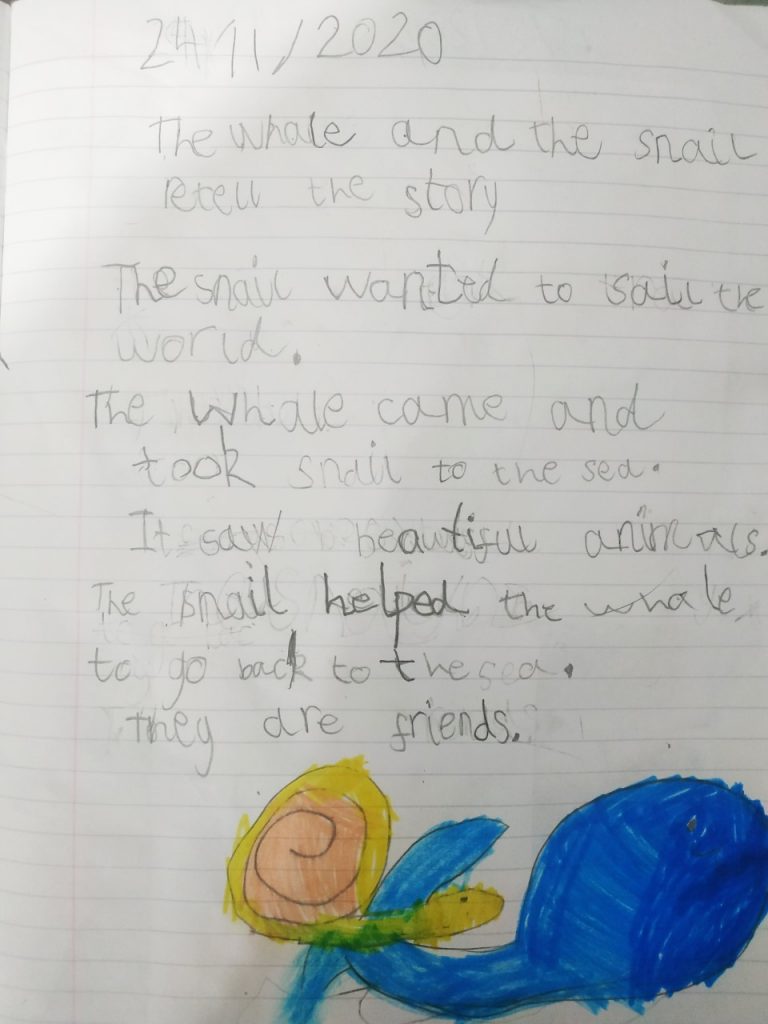 24/11/2020
The whale and the snail
Retell the story
The snail wanted to sail the
world.
The whale came and
took snail to the sea.
It saw beautiful animals.
The snail helped the whale
to go back to the sea.
They are friends.